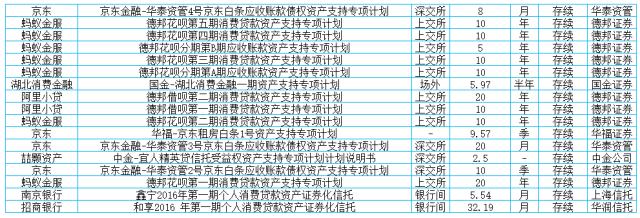 京东 京东金融-华泰资管4号京东白条应收账款债权资产支持专项计划 深交所 8 月 存续 华泰资管
蚂蚁金服 德邦花呗第五期消费贷款资产支持专项计划 上交所 10 年 存续 德邦证券
蚂蚁金服 德邦花呗第四期消费贷款资产支持专项计划 上交所 10 年 存续 德邦证券
蚂蚁金服 德邦花呗分期第B期应收账款资产支持专项计划 上交所 5 年 存续 德邦证券
蚂蚁金服 德邦花呗第三期消费贷款资产支持专项计划 上交所 10 年 存续 德邦证券
蚂蚁金服 德邦花呗分期第A期应收账款资产支持专项计划 上交所 10 年 存续 德邦证券
湖北消费金融 国金-湖北消费金融一期资产支持专项计划 场外 5.97 半年 存续 国金证券
阿里小贷 德邦借呗第二期消费贷款资产支持专项计划 上交所 20 年 存续 德邦证券
阿里小贷 德邦借呗第一期消费贷款资产支持专项计划 上交所 10 年 存续 德邦证券
蚂蚁金服 德邦花呗第二期消费贷款资产支持专项计划 上交所 10 年 存续 德邦证券
京东 华福-京东租房白条1号资产支持专项计划 - 9.57 季 存续 华福证券
京东 京东金融-华泰资管3号京东白条应收账款债权资产支持专项计划 深交所 20 月 存续 华泰资管
喆颢资产 中金-宜人精英贷信托受益权资产支持专项计划计划说明书 深交所 2.5 - 存续 中金公司
京东 京东金融-华泰资管2号京东白条应收账款债权资产支持专项计划 深交所 10 季 存续 华泰资管
蚂蚁金服 德邦花呗第一期消费贷款资产支持专项计划 上交所 20 年 存续 德邦证券
南京银行 鑫宁2016年第一期个人消费贷款资产证券化信托 银行间 5.54 月 存续 上海信托
招商银行 和享2016 年第一期个人消费贷款资产证券化信托 银行间 32.19 月 存续 华润信托